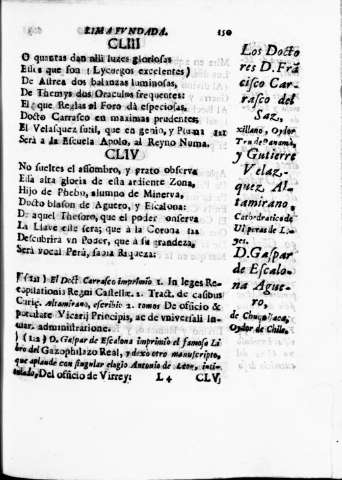 LIMA FVNDADA. 150
CLIII
O quantas dan allì luzes gloriosas
Estos que son (Lycurgos excelentes)
De Astrea dos balanzas luminosas,
De Themys dos Oraculos frequentes:
El que Reglas al Foro dà especiosas,
Docto Carrasco en maximas prudentes;
El Velasquez sutil, que en genio, y Pluma
Serà à la Escuela Apolo, al Reyno Numa.
CLIV
No sueltes el assombro, y grato observa
Essa alta gloria de esta ardiente Zona,
Hijo de Phebo, alumno de Minerva,
Docto blason de Aguero, y Escalona:
De aquel Thesoro, que el poder conserva
La Llave este serà; que à la Corona
Descubrirà vn Poder, que à su grandeza,
Serà vocal Perù, sabia Riqueza:
El Doct. Carrasco imprimiò 1. In leges Re-
copilationis Regni Castellæ. 2. Tract. de casibus
Curiæ. Altamirano, escribiò 2. tomos De officio &
potestate Vicarij Principis, ac de vniversali in-
uar. administratione.
D. Gaspar de Escalona imprimiò el famoso Li
bro del Gazophilazo Real, y dexò otro manuscripto,
que aplaude con singular elogio Antonio de Leon, inti-
tulado, Del officio de Virrey:
L4 CLV;
Los Docto
res D. Frā
cisco Car-
rasco del
Saz,
xillano, Oydor
Tru de Panamà,
y Gutierre
Velaz-
quez Al-
tamirano,
Cathedratico de
Visperas de L
yes.
D. Gaspar
de Escalo
na Ague-
ro,
de Chuquisaca,
Oydor de Chile.